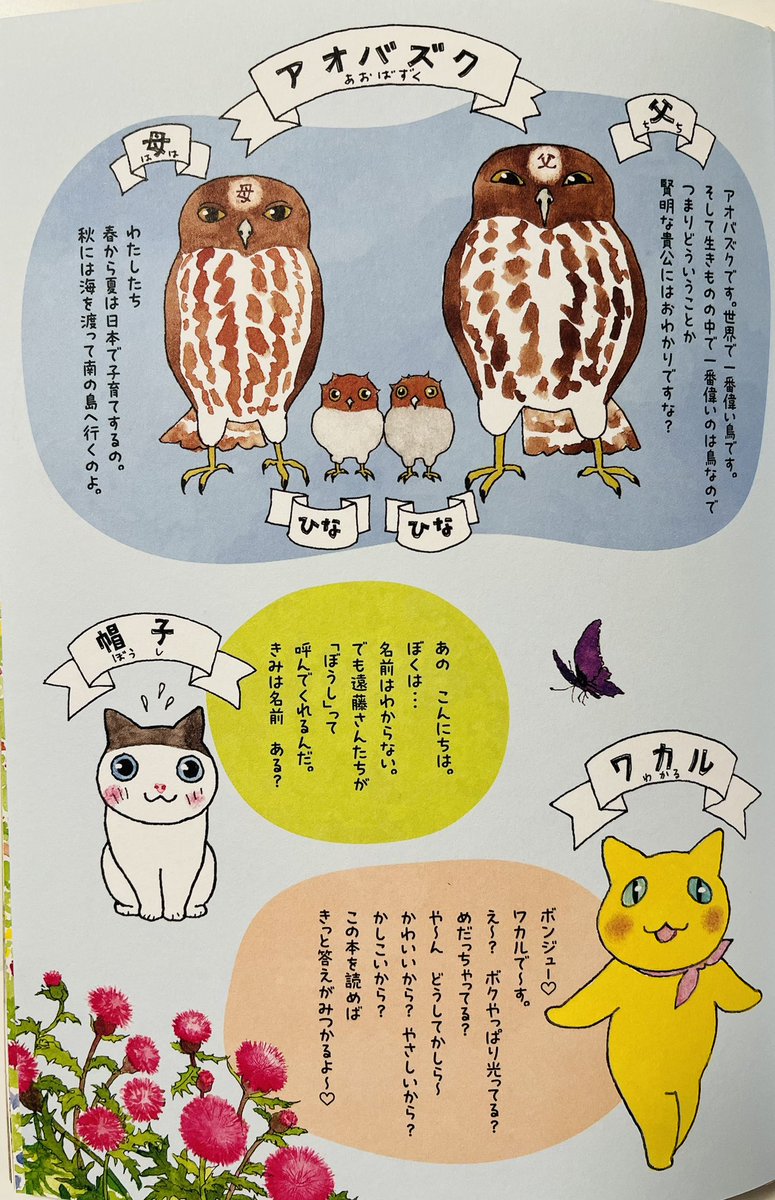 アオバズク
あおばずく
父
ちち
父
アオバズクです。世界で一番偉い鳥です。
そして生きものの中で一番偉いのは鳥なので
つまりどういうことか
賢明な貴公にはおわかりですな?
母
はは
母
わたしたち
春から夏は日本で子育てするの。
秋には海を渡って南の島へ行くのよ。
ひな
ひな
帽子
ぼうし
あの こんにちは。
ぼくは…
名前はわからない。
でも遠藤さんたちが
「ぼうし」って
呼んでくれるんだ。
きみは名前 ある?
ワカル
わかる
ボンジュー♡
ワカルで〜す。
え〜? ボクやっぱり光ってる?
めだっちゃってる?
や〜ん どうしてかしら〜
かわいいから? やさしいから?
かしこいから?
この本を読めば
きっと答えがみつかるよ〜♡